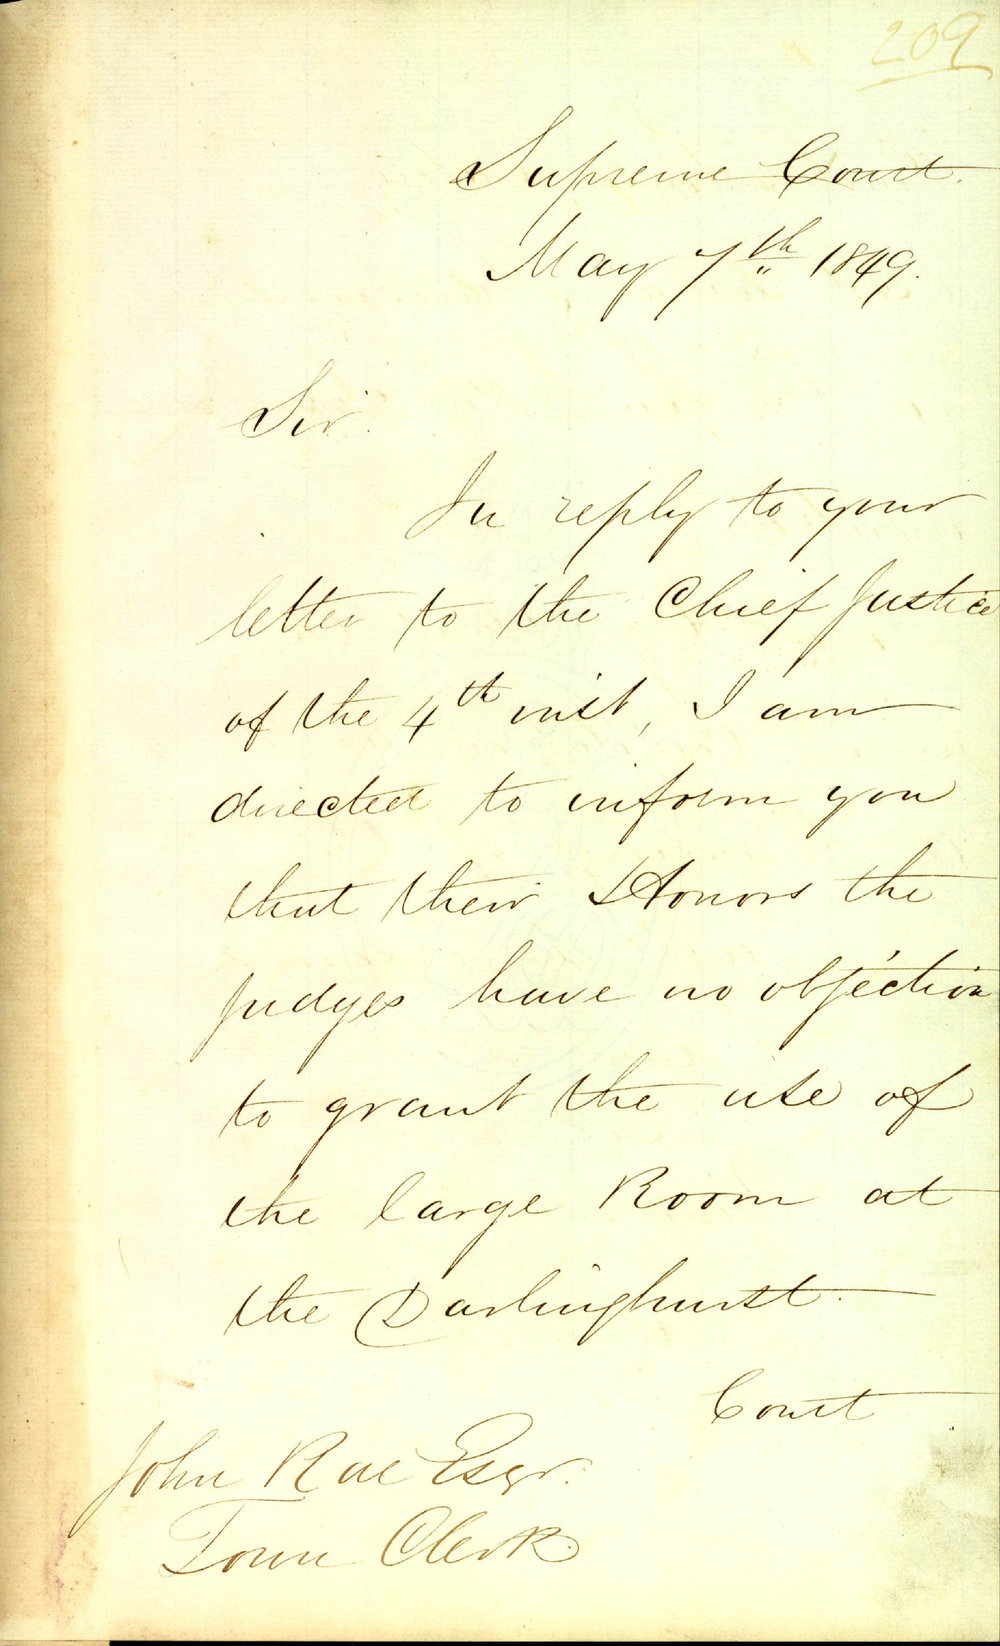 209
Supreme Court.
May 7th 1849.
Sir.
In reply to your
letter to the Chief Justice
of the 4th inst, I am
directed to inform you
that their Honors the
Judges have no objection
to grant the use of
the large Room at
the Darlinghurst.
Court
John Rae Esqr.
Town Clerk